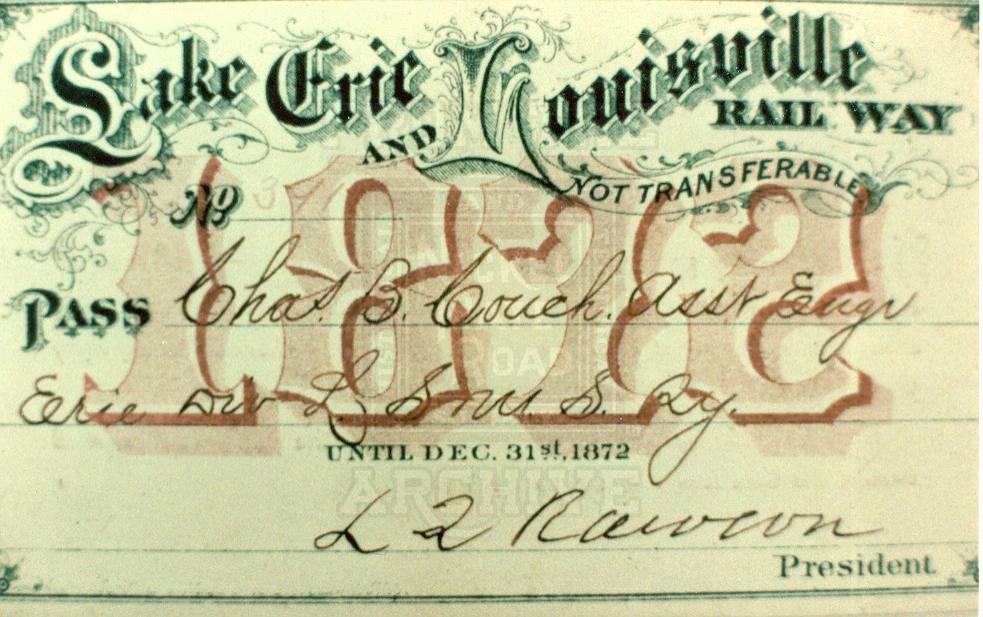 Lake Erie AND Louisville
RAIL WAY
NOT TRANSFERABLE
No 3
1872
PASS Chas. B. Couch. Asst Engr
Erie Div L. S. & M. S. Ry.
UNTIL DEC. 31st, 1872
L Q Rawson
President
ROAD
ARCHIVE